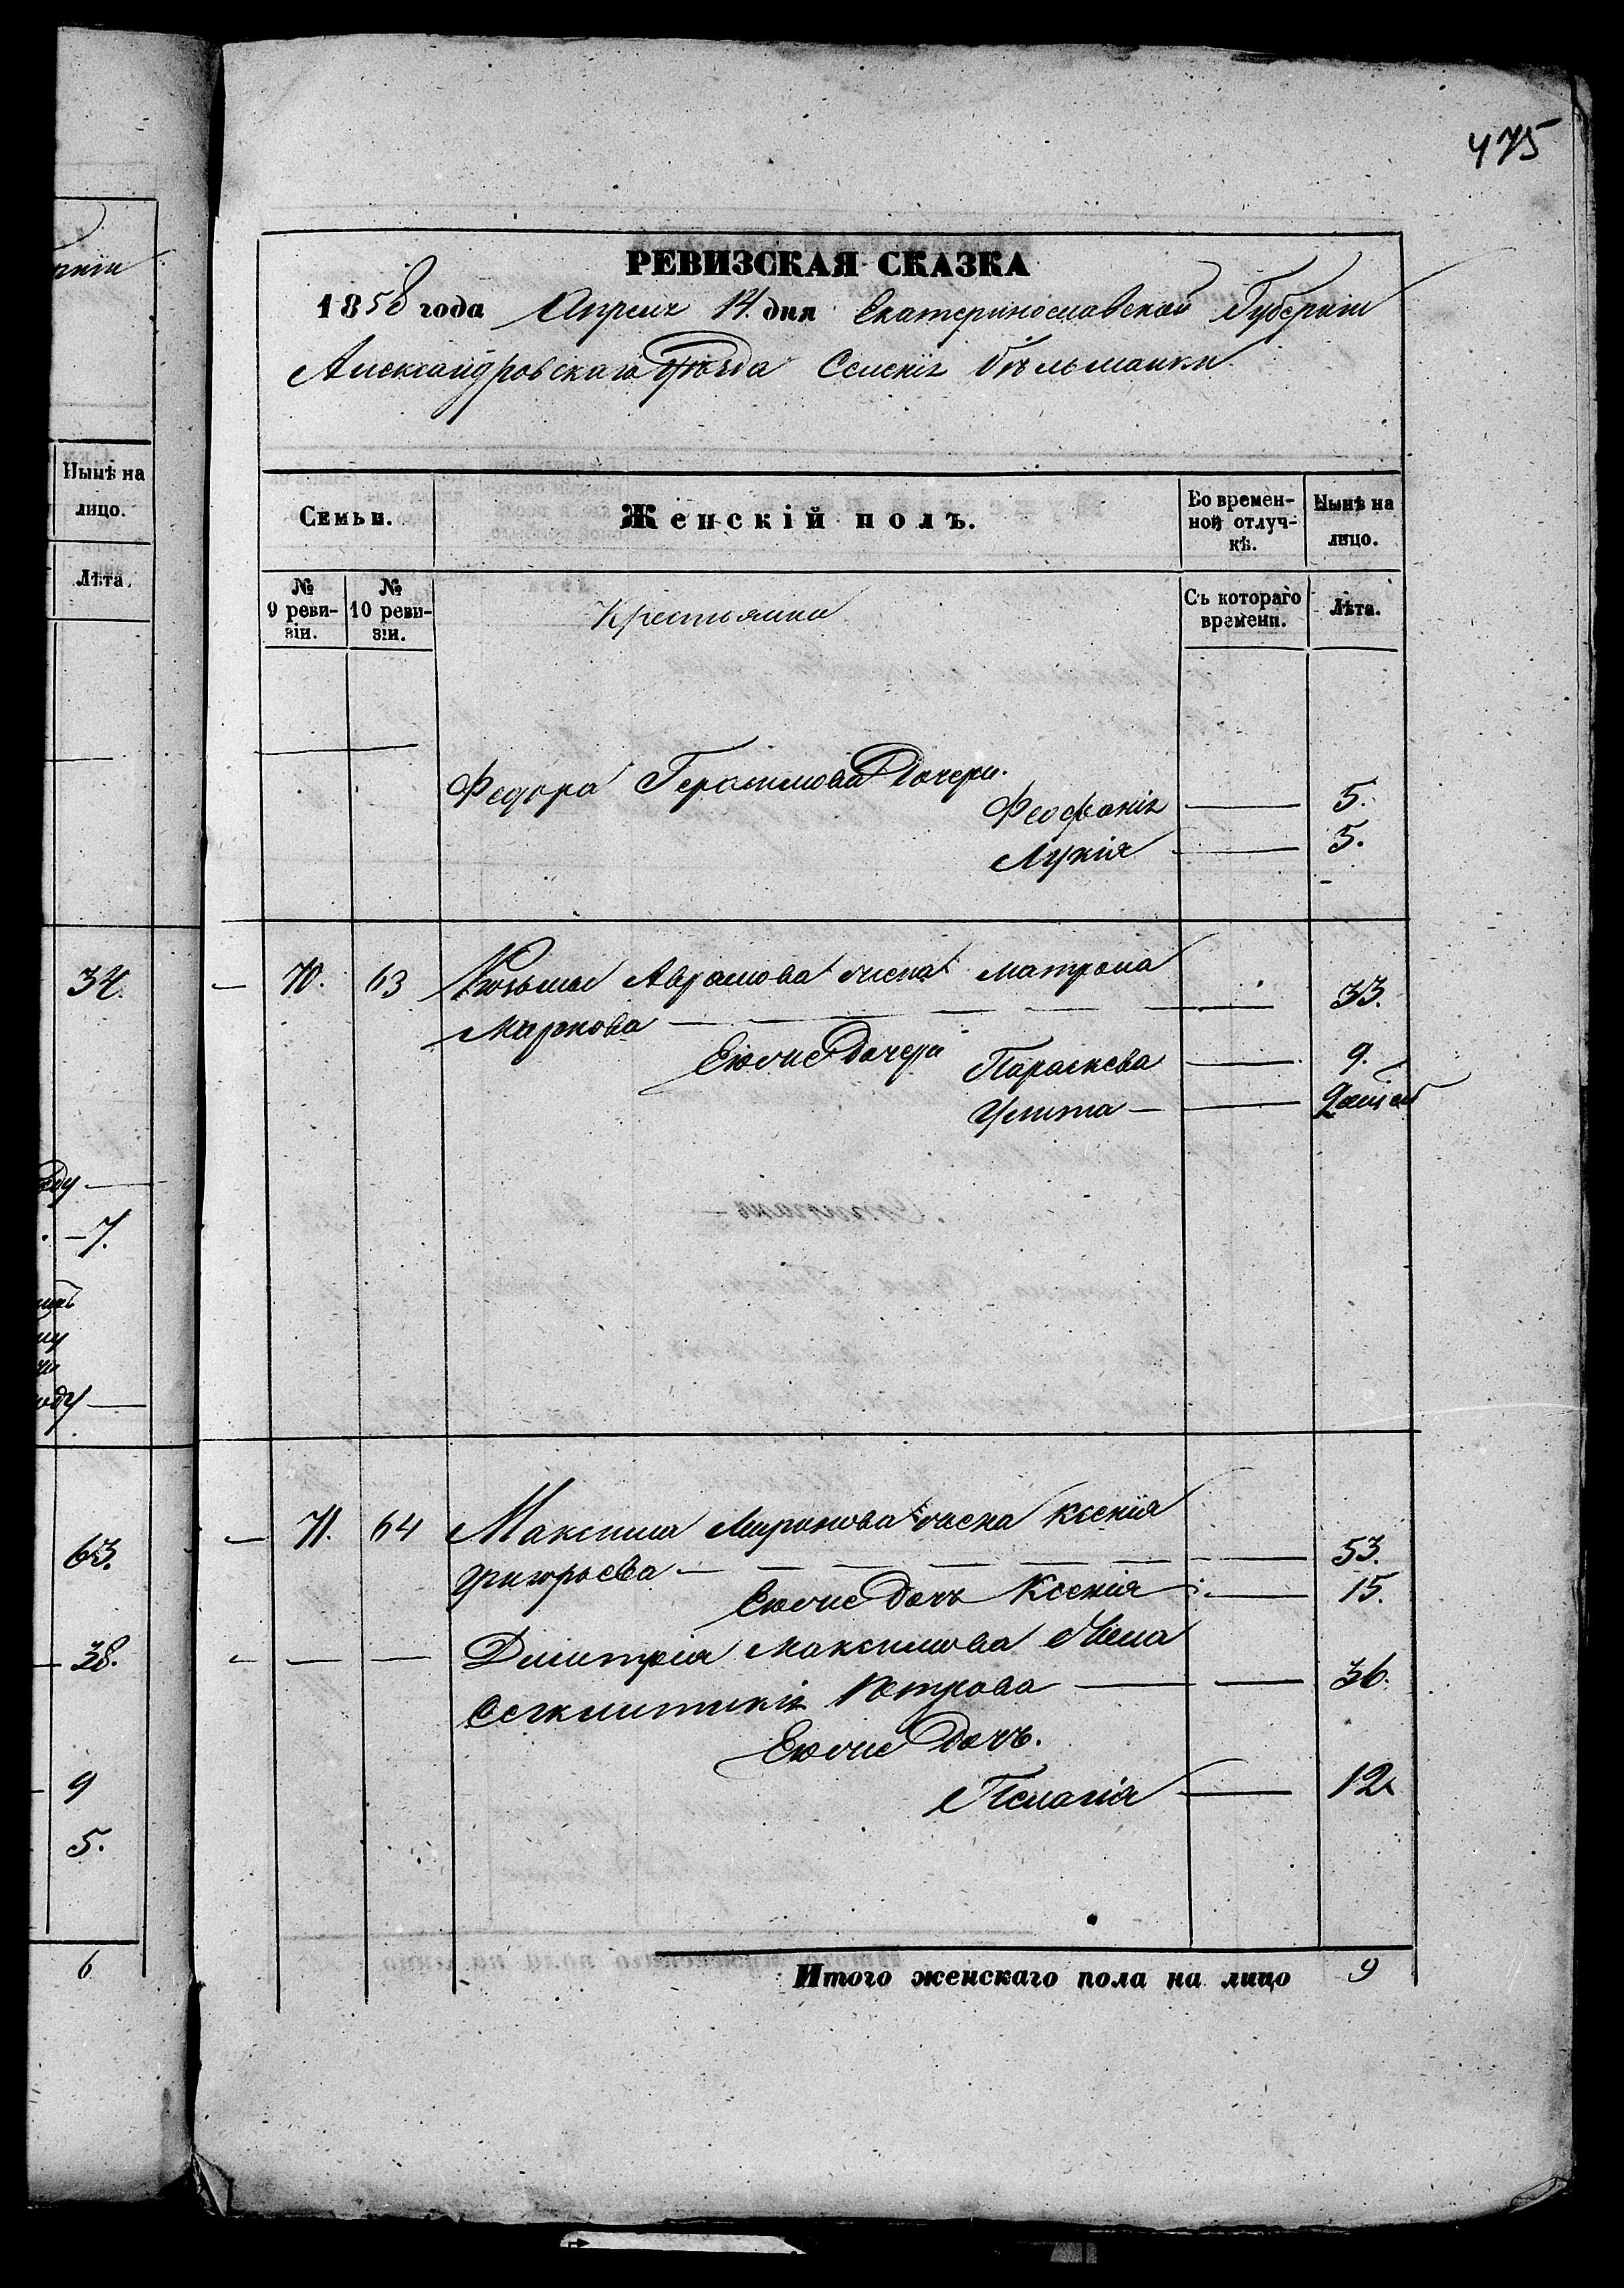 475
РЕВИЗСКАЯ СКАЗКА
1858 года Апреля 14. дня Екатеринославской Губерніи
Александровскаго уѣзда Селенія Бѣльманки
Семьи.
Женскій полъ.
Во времен-
ной отлуч-
кѣ.
Нынѣ на
лицо.
№
9 реви-
зіи.
№
10 реви-
зіи.
Крестьянки
Съ котораго
времени.
Лѣта.
Федора Герасимова Дочери.
Феофанія 5.
Лукія 5.
70. 63 Козьмы Аврамова жена Матрона
Маркова 33.
Еюже Дочери Параскева 9.
Улита
71. 64 Максима Миронова жена Ксенія
Григорьева 53.
Еюже Дочь Ксенія 15.
Димитрія Максимова Жена
Секлитикія Петрова 36.
Еюже Дочь.
Пелагія 12
Итого женскаго пола на лицо 9
Нынѣ на
лицо.
Лѣта.
34.
7.
63.
38.
9
5.
6